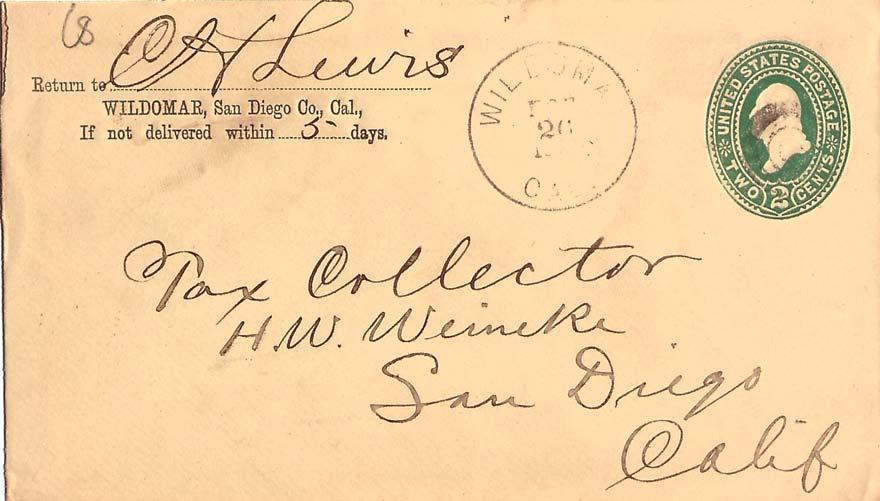 68
Return to C H Lewis
WILDOMAR, San Diego Co., Cal.,
If not delivered within 5 days.
WILDOMA
26
CAL
UNITED STATES POSTAGE
TWO 2 CENTS
Tax Collector
H.W. Weineke
San Diego
Calif